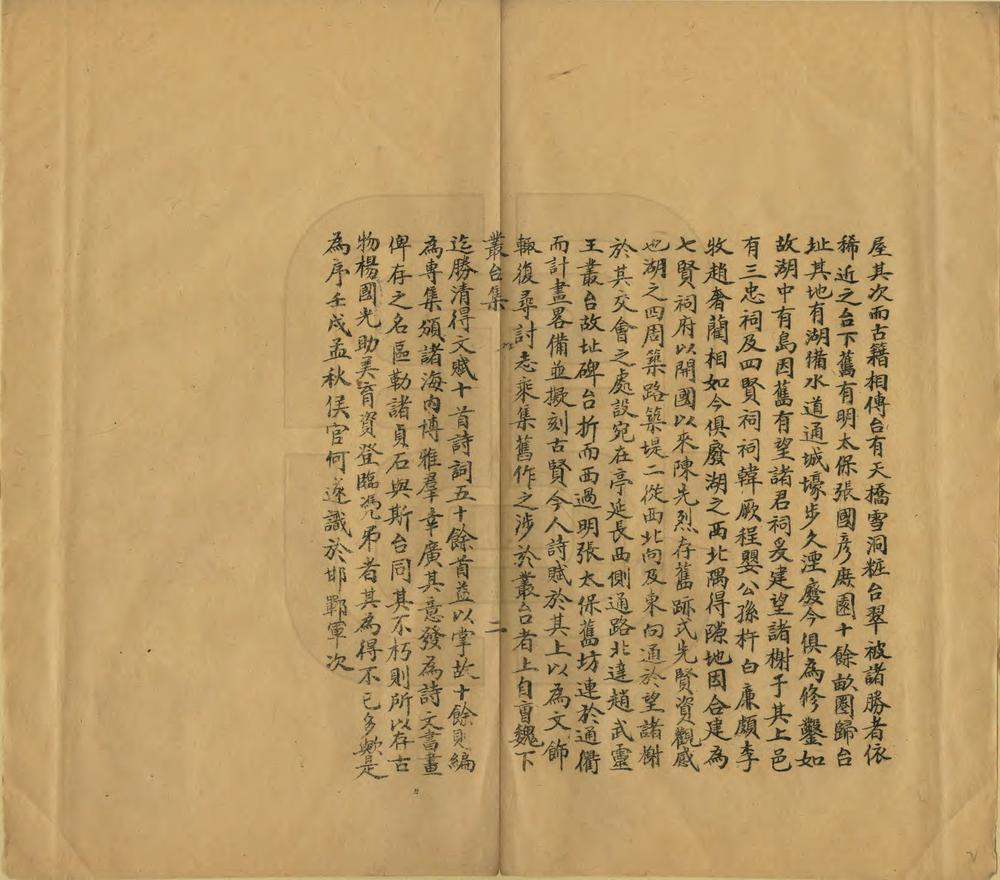 屋其次而古籍相傳台有天橋雪洞粧台翠被諸勝者依
稀近之台下舊有明太保張國彥廢園十餘畝圈歸台
址其地有湖備水道通城壕步久湮廢今俱為修鑿如
故湖中有島因舊有望諸君祠爰建望諸榭于其上邑
有三忠祠及四賢祠祠韓厥程嬰公孫杵臼廉頗李
牧趙奢藺相如今俱廢湖之西北隅得隙地因合建為
七賢祠府以開國以來陳先烈存舊跡式先賢資觀感
也湖之四周築路築堤二從西北向及東向通於望諸榭
於其交會之處設宛在亭延長西側通路北達趙武靈
王叢台故址碑台折而西過明張太保舊坊連於通衢
而計畫畧備並擬刻古賢今人詩賦於其上以為文飾
輙復尋討志乘集舊作之涉於叢台者上自曹魏下
叢台集
二
迄勝清得文賦十首詩詞五十餘首益以掌故十餘則編
為專集頒諸海內博雅羣幸廣其意發為詩文書畫
俾存之名區勒諸貞石與斯台同其不朽則所以存古
物楊國光助美育資登臨憑弔者其為得不已多歟是
為序壬戌孟秋侯官何遂識於邯鄲軍次